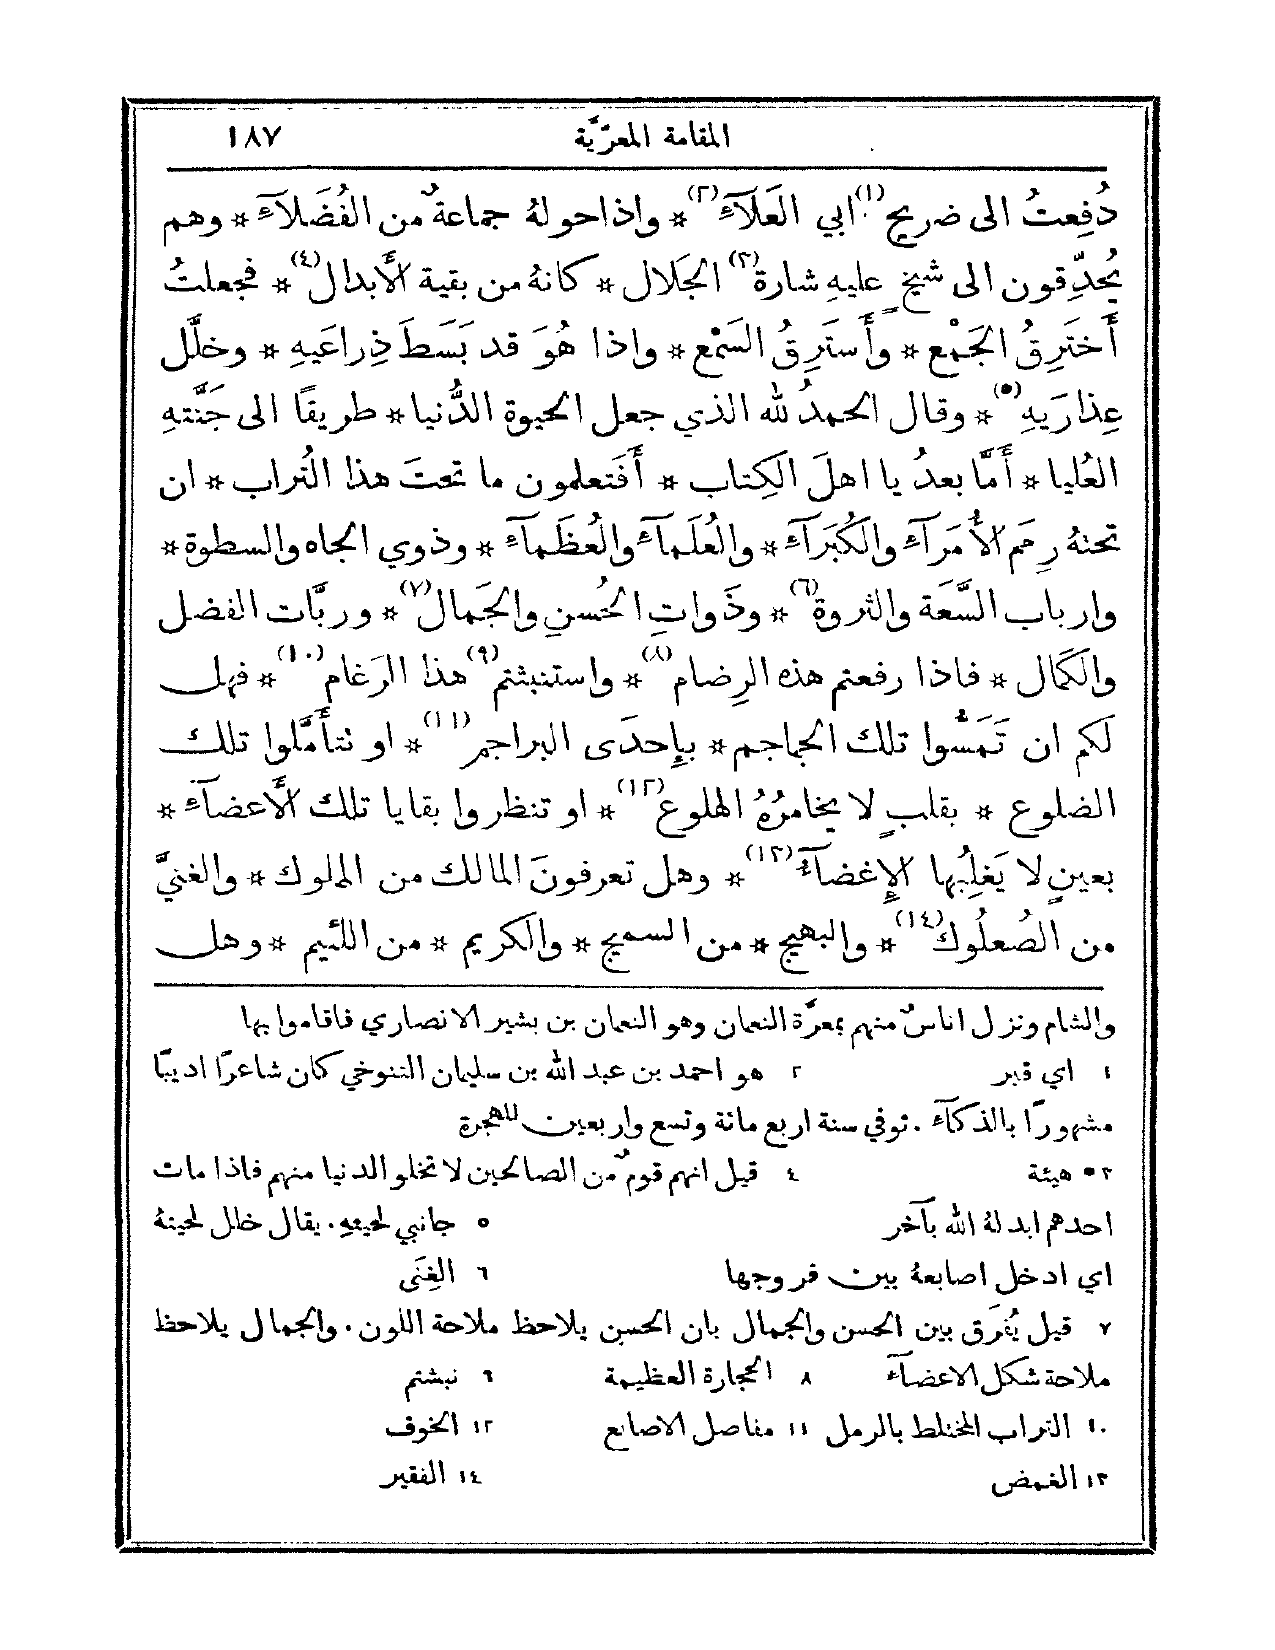 المقامة المعرّيَّة ١٨٧
دُفِعتُ الى ضريح(١) ابي العَلَآءِ(٢) * واذا حولهُ جماعةٌ من الفُضَلآءِ * وهم
يُحدِّقون الى شيخٍ عليهِ شارة(٣) الجَلال * كانهُ من بقية الأَبدال(٤) * فجعلتُ
أَختَرِقُ الجَمْع * وأَستَرِقُ السَمْع * واذا هُوَ قد بَسَطَ ذِراعَيهِ * وخلَّل
عِذارَيهِ(٥) * وقال الحمدُ لله الذي جعل الحيوة الدُّنيا * طريقًا الى جَنَّتهِ
العُليا * أَمَّا بعدُ يا اهلَ الكِتاب * أَفَتعلمون ما تحتَ هذا التُراب * ان
تحتهُ رِمَم الأُمَرآءِ والكُبَرآءِ * والعُلَمآءِ والعُظَمآءِ * وذوي الجاه والسطوة *
وارباب السَّعَة والثروة(٦) * وذَواتِ الحُسنِ والجَمال(٧) * وربَّات الفضل
والكَمال * فاذا رفعتم هذه الرِضام(٨) * واستنبثتم(٩) هذا الرَغام(١٠) * فهل
لكم ان تَمَسُّوا تلك الجماجم * بإِحدَى البراجم(١١) * او نتأَمَّلوا تلك
الضلوع * بقلبٍ لا يخامرُهُ الهلوع(١٢) * او تنظروا بقايا تلك الأَعضآءِ *
بعينٍ لا يَغلِبُها الإِغضآءُ(١٣) * وهل تعرفونَ المالك من الملوك * والغنيَّ
من الصُعلُوك(١٤) * والبهيج * من السميج * والكريم * من اللئيم * وهل
والشام ونزل اناسٌ منهم بمعرَّة النعمان وهو النعمان بن بشير الانصاري فاقاموا بها
١ اي قبر ٢ هو احمد بن عبد الله بن سليمان التنوخي كان شاعرًا اديبًا
مشهورًا بالذكآءِ. توفي سنة اربع مائة وتسع واربعين للهجرة
٣ هيئة ٤ قيل انهم قومٌ من الصالحين لا تخلو الدنيا منهم فاذا مات
احدهم ابدلهُ الله بآخر ٥ جانبي لحيتهِ. يقال خلل لحيتهُ
اي ادخل اصابعهُ بين فروجها ٦ الغِنَى
٧ قيل يُفرَق بين الحسن والجمال بان الحسن يلاحظ ملاحة اللون. والجمال يلاحظ
ملاحة شكل الاعضآءِ ٨ الحجارة العظيمة ٩ نبشتم
١٠ التراب المختلط بالرمل ١١ مفاصل الاصابع ١٢ الخوف
١٣ الغمض ١٤ الفقير